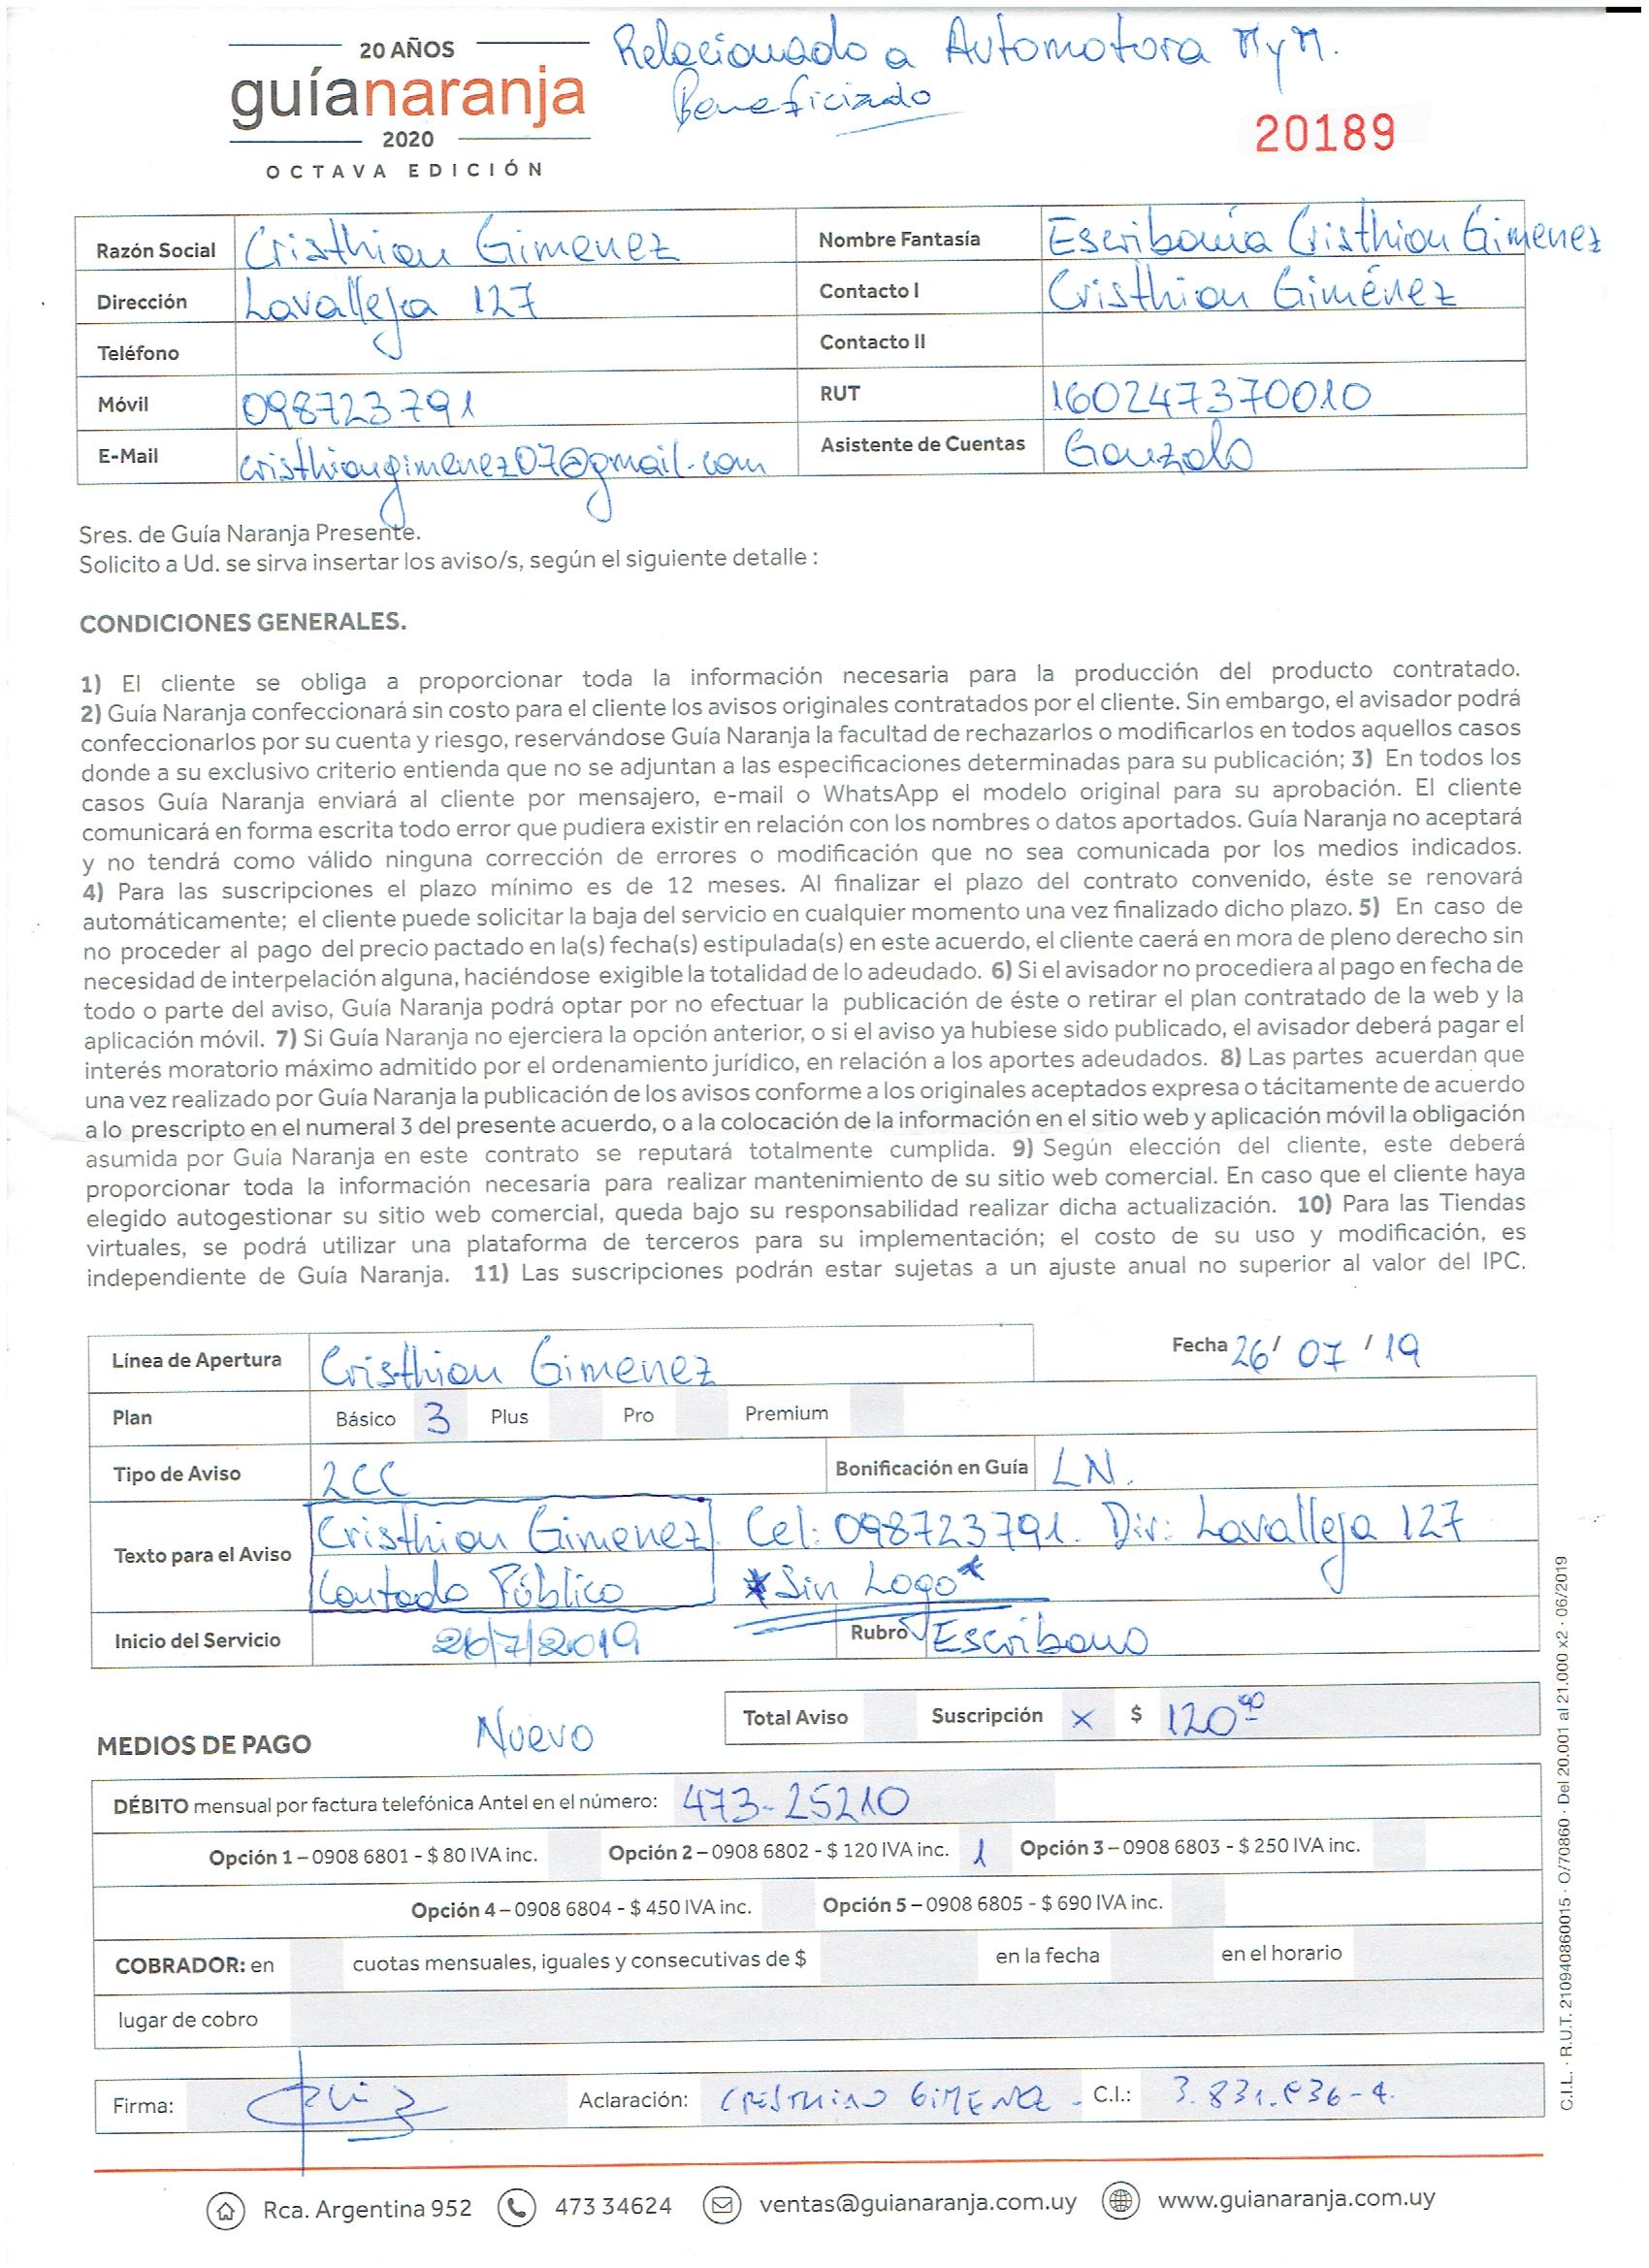 Relacionado a Automotora MyM.
Beneficiado
20 AÑOS
guíanaranja
2020
OCTAVA EDICIÓN
20189
Razón Social Cristhian Gimenez Nombre Fantasía Escribanía Cristhian Gimenez
Dirección Lavalleja 127 Contacto I Cristhian Giménez
Teléfono Contacto II
Móvil 098723791 RUT 160247370010
E-Mail cristhiangimenez07@gmail.com Asistente de Cuentas Gonzalo
Sres. de Guía Naranja Presente.
Solicito a Ud. se sirva insertar los aviso/s, según el siguiente detalle :
CONDICIONES GENERALES.
1) El cliente se obliga a proporcionar toda la información necesaria para la producción del producto contratado.
2) Guía Naranja confeccionará sin costo para el cliente los avisos originales contratados por el cliente. Sin embargo, el avisador podrá
confeccionarlos por su cuenta y riesgo, reservándose Guía Naranja la facultad de rechazarlos o modificarlos en todos aquellos casos
donde a su exclusivo criterio entienda que no se adjuntan a las especificaciones determinadas para su publicación; 3) En todos los
casos Guía Naranja enviará al cliente por mensajero, e-mail o WhatsApp el modelo original para su aprobación. El cliente
comunicará en forma escrita todo error que pudiera existir en relación con los nombres o datos aportados. Guía Naranja no aceptará
y no tendrá como válido ninguna corrección de errores o modificación que no sea comunicada por los medios indicados.
4) Para las suscripciones el plazo mínimo es de 12 meses. Al finalizar el plazo del contrato convenido, éste se renovará
automáticamente; el cliente puede solicitar la baja del servicio en cualquier momento una vez finalizado dicho plazo. 5) En caso de
no proceder al pago del precio pactado en la(s) fecha(s) estipulada(s) en este acuerdo, el cliente caerá en mora de pleno derecho sin
necesidad de interpelación alguna, haciéndose exigible la totalidad de lo adeudado. 6) Si el avisador no procediera al pago en fecha de
todo o parte del aviso, Guía Naranja podrá optar por no efectuar la publicación de éste o retirar el plan contratado de la web y la
aplicación móvil. 7) Si Guía Naranja no ejerciera la opción anterior, o si el aviso ya hubiese sido publicado, el avisador deberá pagar el
interés moratorio máximo admitido por el ordenamiento jurídico, en relación a los aportes adeudados. 8) Las partes acuerdan que
una vez realizado por Guía Naranja la publicación de los avisos conforme a los originales aceptados expresa o tácitamente de acuerdo
a lo prescripto en el numeral 3 del presente acuerdo, o a la colocación de la información en el sitio web y aplicación móvil la obligación
asumida por Guía Naranja en este contrato se reputará totalmente cumplida. 9) Según elección del cliente, este deberá
proporcionar toda la información necesaria para realizar mantenimiento de su sitio web comercial. En caso que el cliente haya
elegido autogestionar su sitio web comercial, queda bajo su responsabilidad realizar dicha actualización. 10) Para las Tiendas
virtuales, se podrá utilizar una plataforma de terceros para su implementación; el costo de su uso y modificación, es
independiente de Guía Naranja. 11) Las suscripciones podrán estar sujetas a un ajuste anual no superior al valor del IPC.
Línea de Apertura Cristhian Gimenez Fecha 26/ 07 / 19
Plan Básico 3 Plus Pro Premium
Tipo de Aviso 2CC Bonificación en Guía LN.
Texto para el Aviso Cristhian Gimenez Cel: 098723791. Dir: Lavalleja 127
Contado Público *Sin Logo*
Inicio del Servicio 26/7/2019 Rubro Escribano
Total Aviso Suscripción x $ 120
MEDIOS DE PAGO Nuevo
DÉBITO mensual por factura telefónica Antel en el número: 473-25210
Opción 1 – 0908 6801 - $ 80 IVA inc. Opción 2 – 0908 6802 - $ 120 IVA inc. 1 Opción 3 – 0908 6803 - $ 250 IVA inc.
Opción 4 – 0908 6804 - $ 450 IVA inc. Opción 5 – 0908 6805 - $ 690 IVA inc.
COBRADOR: en cuotas mensuales, iguales y consecutivas de $ en la fecha en el horario
lugar de cobro
Firma: Aclaración: CRISTHIAN GIMENEZ C.I.:
Rca. Argentina 952 473 34624 ventas@guianaranja.com.uy www.guianaranja.com.uy
C.I.L. · R.U.T. 210940860015 · O/70860 · Del 20.001 al 21.000 x2 · 06/2019